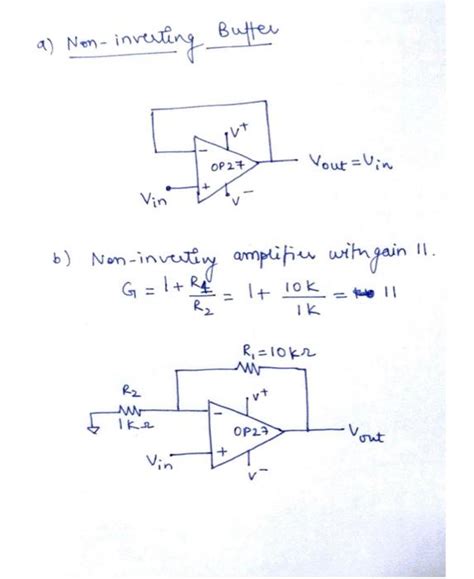 a) Non-inverting Buffer
V+
-
OP27
Vout = Vin
Vin
+
V-
b) Non-inverting amplifier with gain 11.
G = 1 + R1/R2 = 1 + 10K/1K = 11
R1 = 10KΩ
R2
1KΩ
V+
-
OP27
Vout
Vin
+
V-